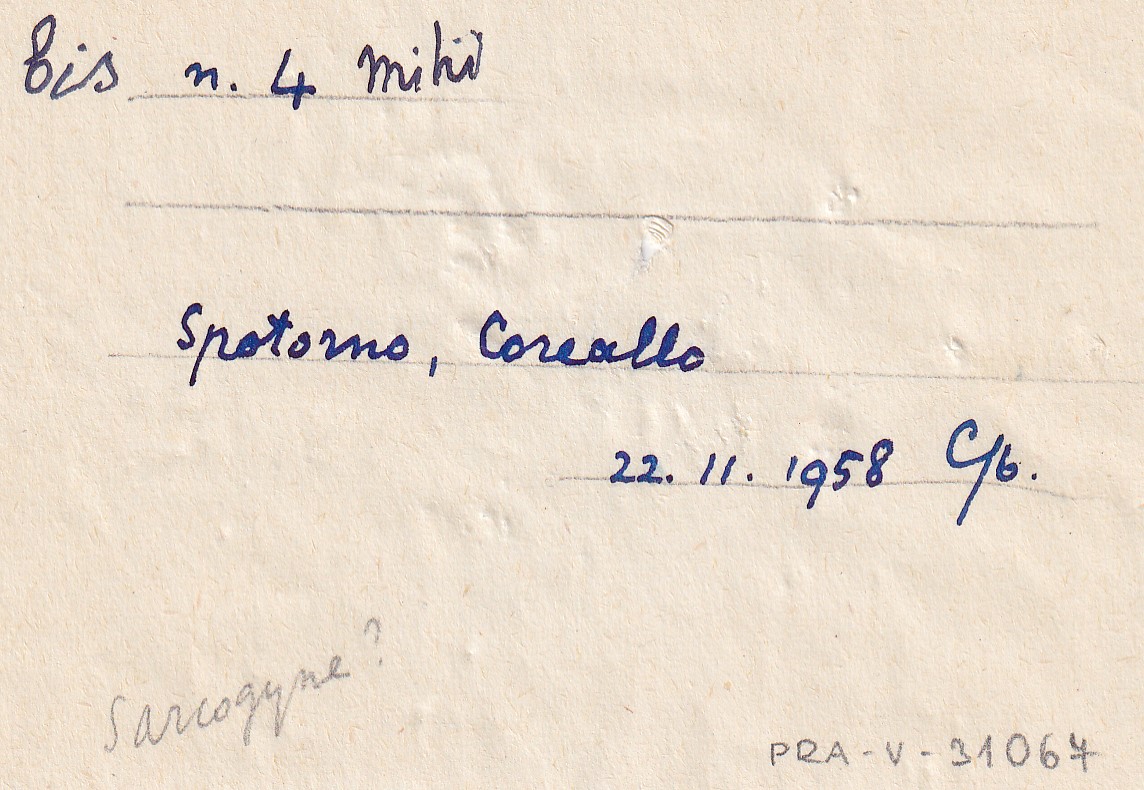 bis n. 4 mihi
Spotorno, Coreallo
22. 11. 1958 C/b.
Sarcogyne?
PRA-V-31067